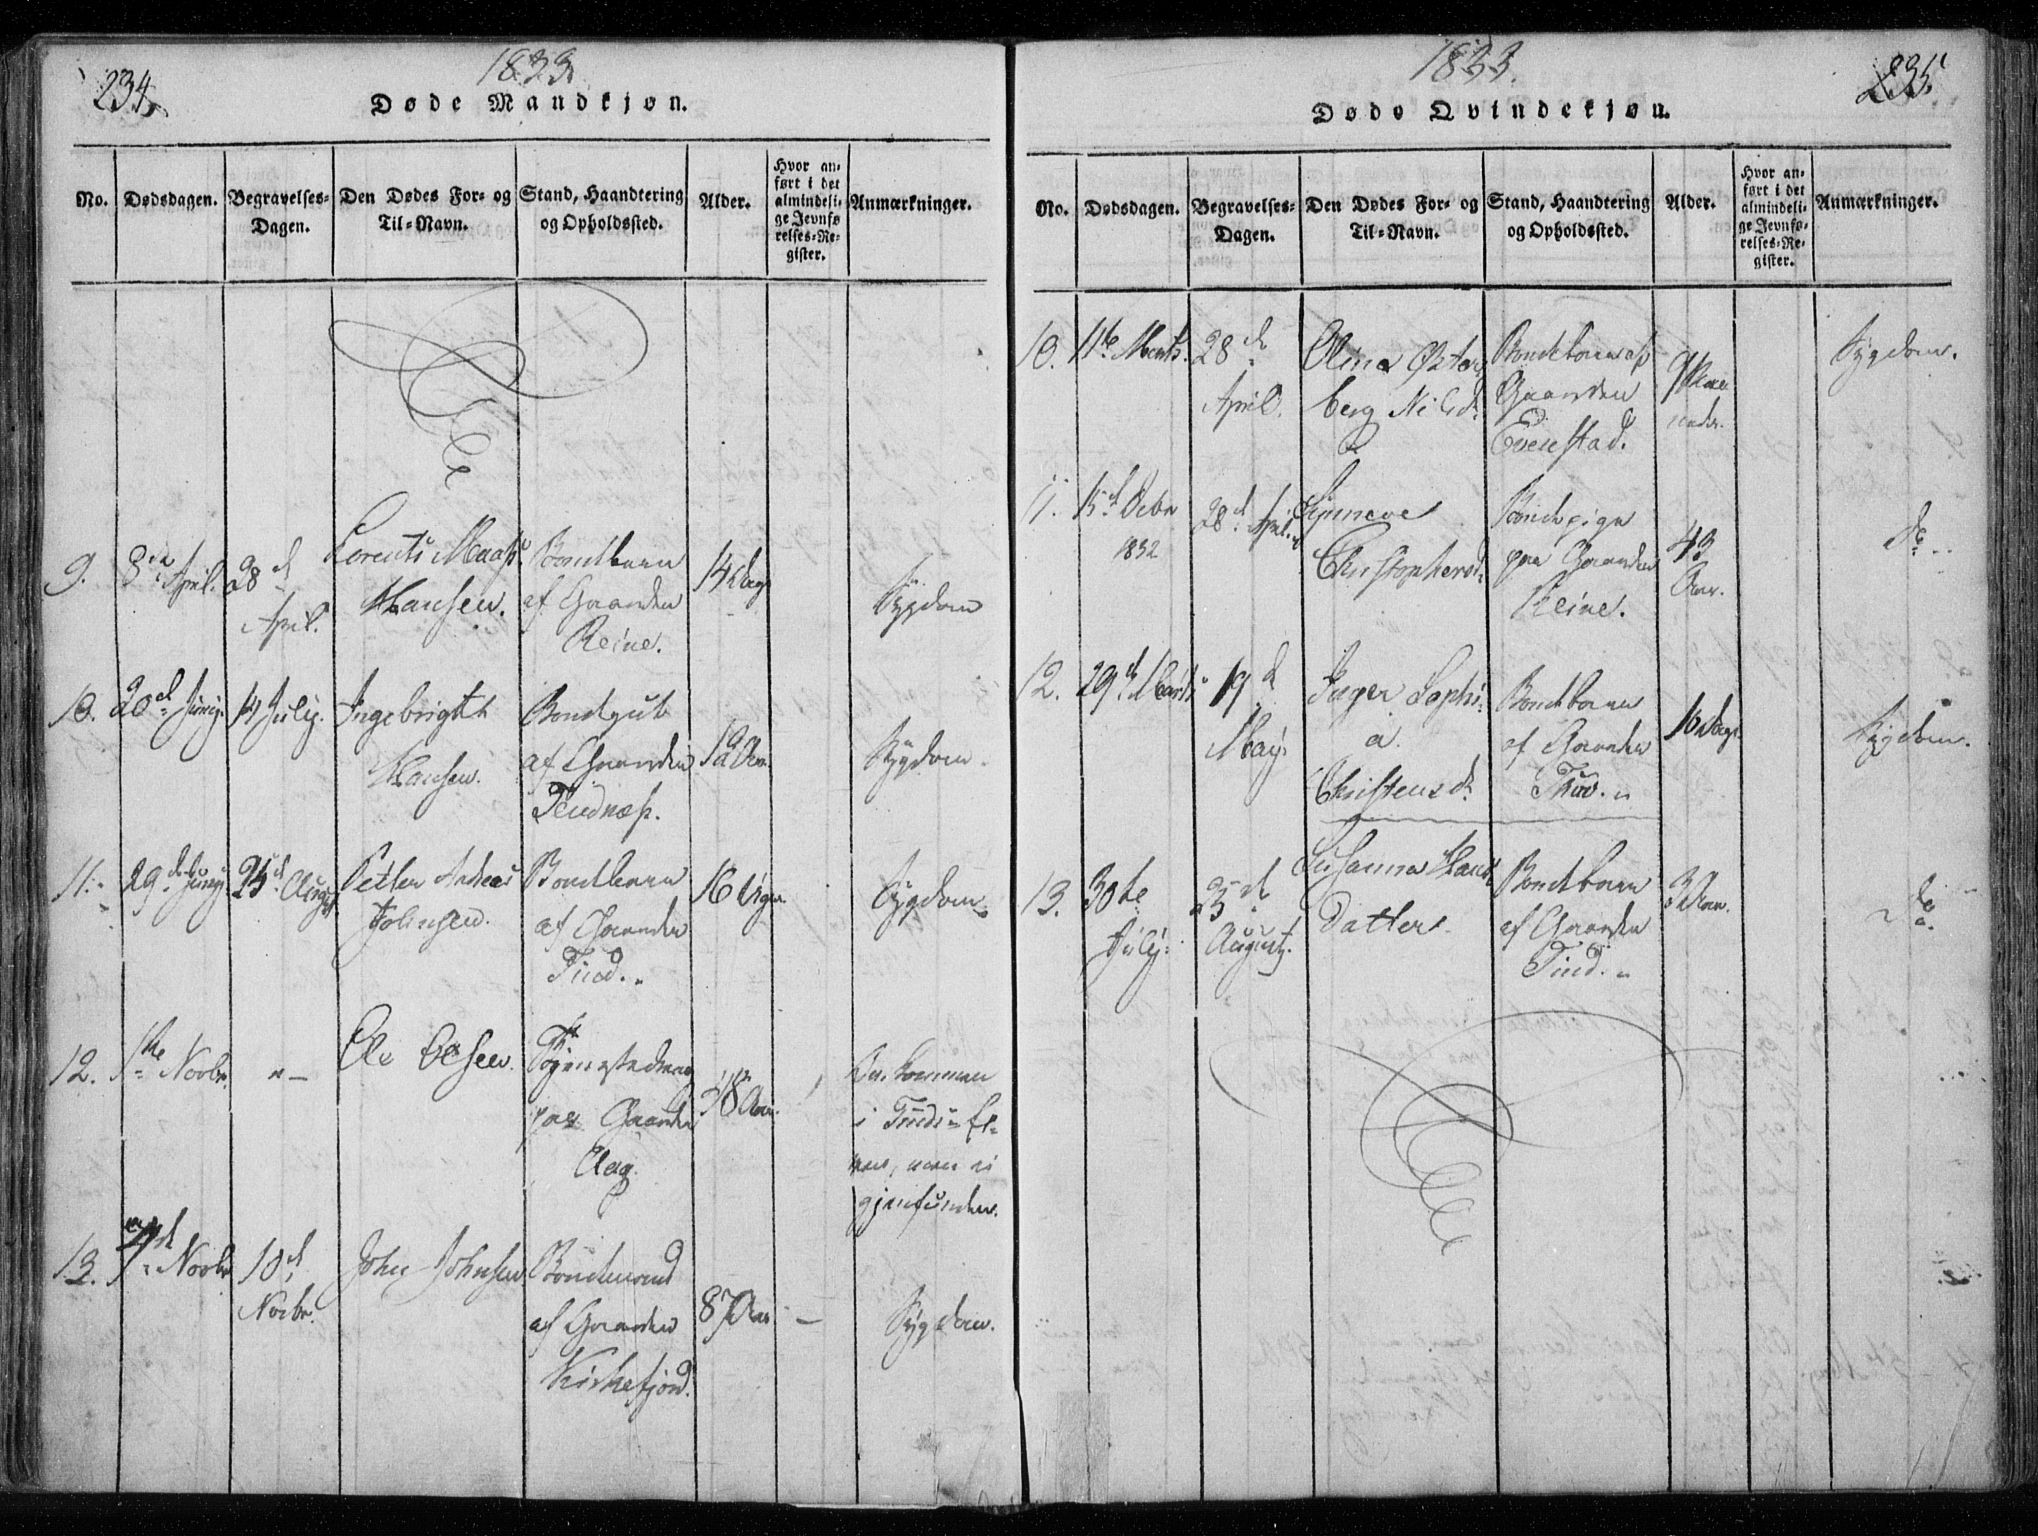 234.
1833.
Døde Mandkjøn.
No.
Dødsdagen.
Begravelses-
Dagen.
Den Dødes For- og
Til-Navn.
Stand, Haandtering
og Opholdssted.
Alder.
Hvor an-
ført i det
almindeli-
ge Jevnfø-
relses-Re-
gister.
Anmærkninger.
9.
8de April.
28d
April.
Lorents
Hansen.
Bondebarn
af Gaarden
Reine.
14 Dage
Sygdom
10.
20d Junij.
14 Julij.
Ingebrigt
Hansen.
Bondegut
af Gaarden
Tendnæss.
12 Aar.
Sygdom.
11.
29d Junij
25d August
Petter Andreas
Johnsen.
Bondebarn
af Gaarden
Tind.
16 Uger
Sygdom.
12.
1ste Novbr.
"–
Ole Olsen.
paa Gaarden
Aag.
Aar.
Omkommen
i Tinds-El-
ven, men ei
gjenfunden.
13.
Novbr
10d
Novbr.
John Johnsen
Bondemand
af Gaarden
Kirkefjord.
87 Aar
–
Sygdom.
1833.
235.
Døde Qvindekjøn.
No.
Dødsdagen.
Begravelses-
Dagen.
Den Dødes For- og
Til-Navn.
Stand, Haandtering
og Opholdssted.
Alder.
Hvor an-
ført i det
almindeli-
ge Jevnfø-
relses-Re-
gister.
Anmærkninger.
10.
11te Marts.
28d
April.
Olina Øster-
berg Nilsd.
Bondebarn af
Gaarden
Evenstad.
9 Maa-
neder.
Sygdom.
11.
15d Debr
1832
28d April.
Synneve
Christophersd.
Bondepige
paa Gaarden
Reine.
43
Aar.
Do
12.
29d Marts
19d
May.
Inger Sophi-
a.
Christensd.
Bondebarn
af Gaarden
10 Dage.
Sygdom.
13.
30te
Julij.
25d
August.
Susanna Hans
Datter.
Bondebarn
af Gaarden
Tind.
3 Aar.
Do